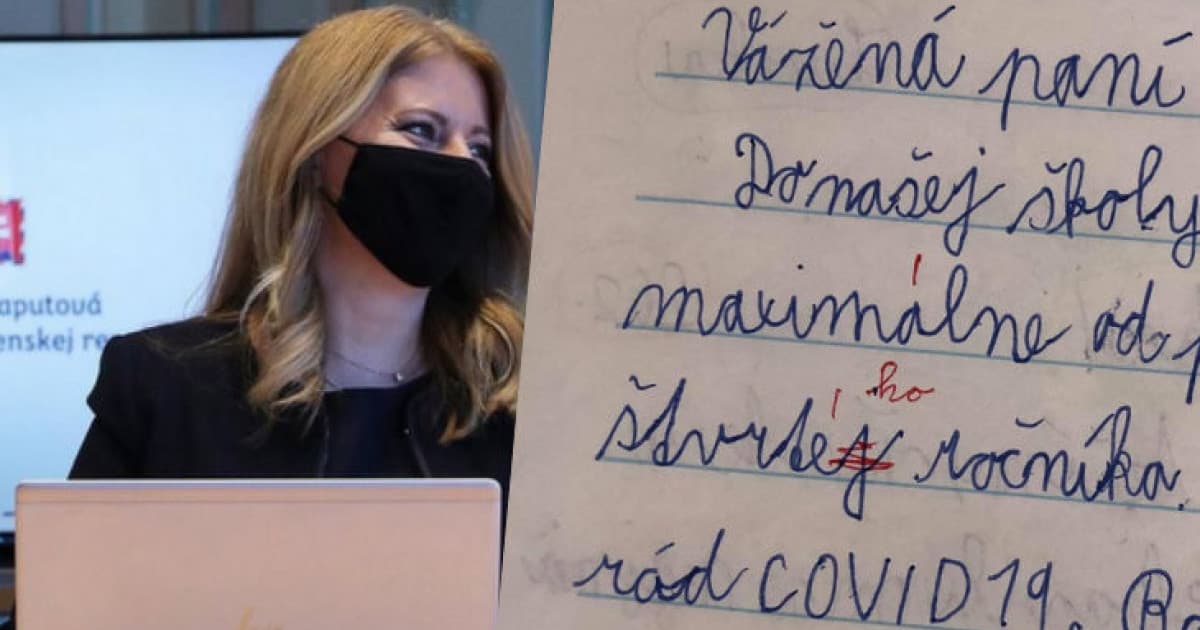 aputová
enskej re
Vážená paní
Do našej školy
maximálne od
ho
štvrtéj ročníka.
rád COVID19.